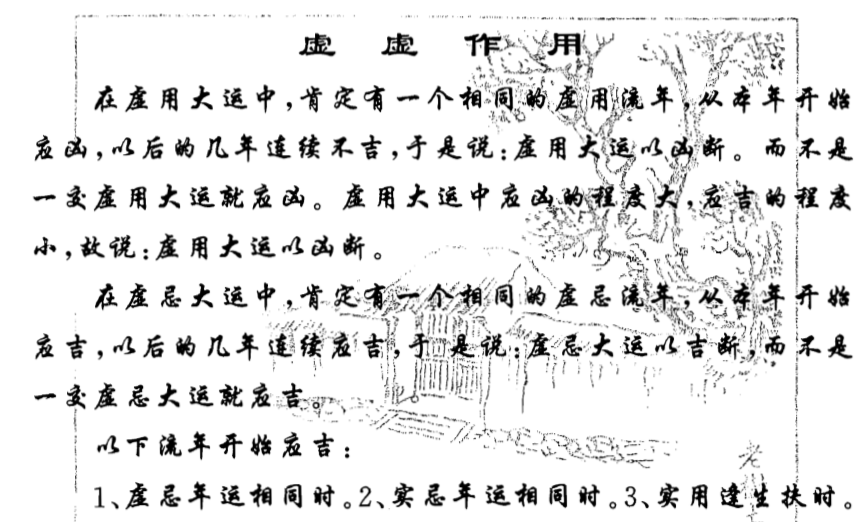 虚虚作用
在虚用大运中，肯定有一个相同的虚用流年，从本年开始
应凶，以后的几年连续不吉，于是说：虚用大运以凶断。而不是
一交虚用大运就应凶。虚用大运中应凶的程度大，应吉的程度
小，故说：虚用大运以凶断。
在虚忌大运中，肯定有一个相同的虚忌流年，从本年开始
应吉，以后的几年连续应吉，于是说：虚忌大运以吉断，而不是
一交虚忌大运就应吉。
以下流年开始应吉：
老
1、虚忌年运相同时。2、实忌年运相同时。3、实用逢生扶时。